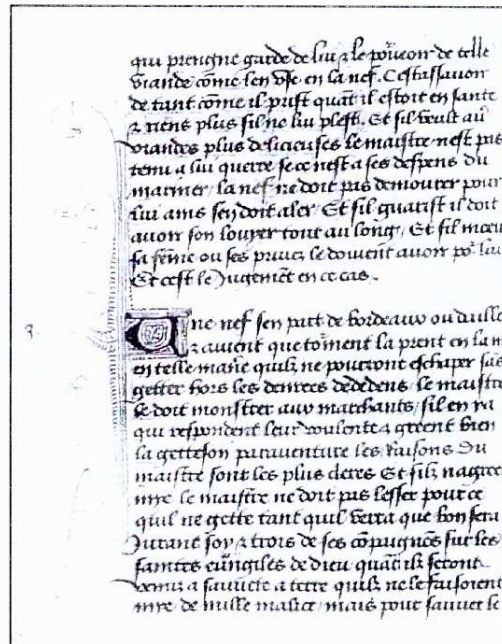 qui prengne garde de lui ⁊ le po͛veoir de telle
viande cōme len vse en la nef. Cestassauoir
de tant cōme il prist quāt il estoit en sante
⁊ riens plus sil ne lui plest. Et sil veult au
viandes plus delicieuses le maistre nest pas
tenu a lui querre se ce nest a ses despens du
mariner, la nef ne doit pas demourer pour
lui ains sen doit aler, Et sil guarist il doit
auoir son louyer tout au long, Et sil mœu
sa fēme ou ses priuez le doiuent auoir po͛ lui
Et cest le Jugemēt en ce cas.
Une nef sen part de bordeaux ou daille
⁊ auient que torment la prent en la m
en telle maniē quilz ne pourront eschaper sās
getter hors les denrees dēdedens, le maistre
le doit monstrer aux marchants, sil en ya
qui respondent leur voulente ⁊ greent bien
la getteson parauenture les Raisons du
maistre sont les plus cleres Et silz nagree
mie le maistre ne doit pas lesser pour ce
quil ne gette tant quil verra que bon sera
Jurant soy ⁊ trois de ses cōpagnōs sur les
saintes euūgiles de dieu quāt ilz seront
venuz a sauuete a terre quilz ne le faisoient
mie de nulle malice, mais pour sauuer le